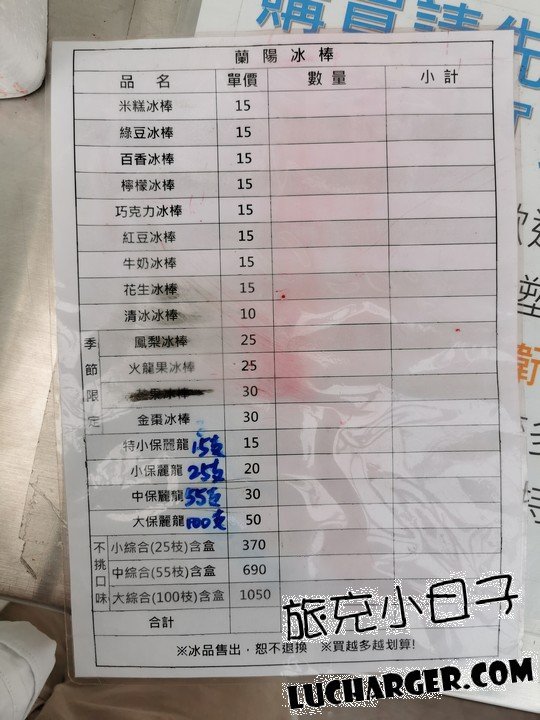 購買請先
蘭陽冰棒
品名 單價 數量 小計
米糕冰棒 15
綠豆冰棒 15
百香冰棒 15
檸檬冰棒 15
巧克力冰棒 15
紅豆冰棒 15
牛奶冰棒 15
花生冰棒 15
清冰冰棒 10
季節限定
鳳梨冰棒 25
火龍果冰棒 25
果冰棒 30
金棗冰棒 30
特小保麗龍 15支 15
小保麗龍 25支 20
中保麗龍 55支 30
大保麗龍 100支 50
不挑口味
小綜合(25枝)含盒 370
中綜合(55枝)含盒 690
大綜合(100枝)含盒 1050
合計
※冰品售出，恕不退換 ※買越多越划算!
塑
衛
特
旅充小日子
LUCHARGER.COM